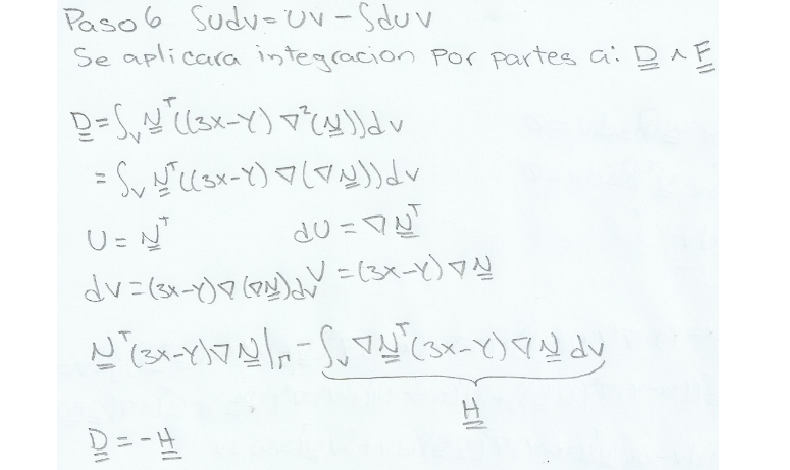 Paso 6 ∫udv = UV - ∫duv
Se aplicara integracion por partes a: D ^ F
D = ∫v N^T((3x-Y) ∇²(N))dv
= ∫v N^T((3x-Y) ∇(∇N))dv
U = N^T dU = ∇N^T
dv = (3x-Y)∇(∇N)dv V = (3x-Y)∇N
N^T(3x-Y)∇N|Γ - ∫v ∇N^T(3x-Y)∇N dv
H
D = -H